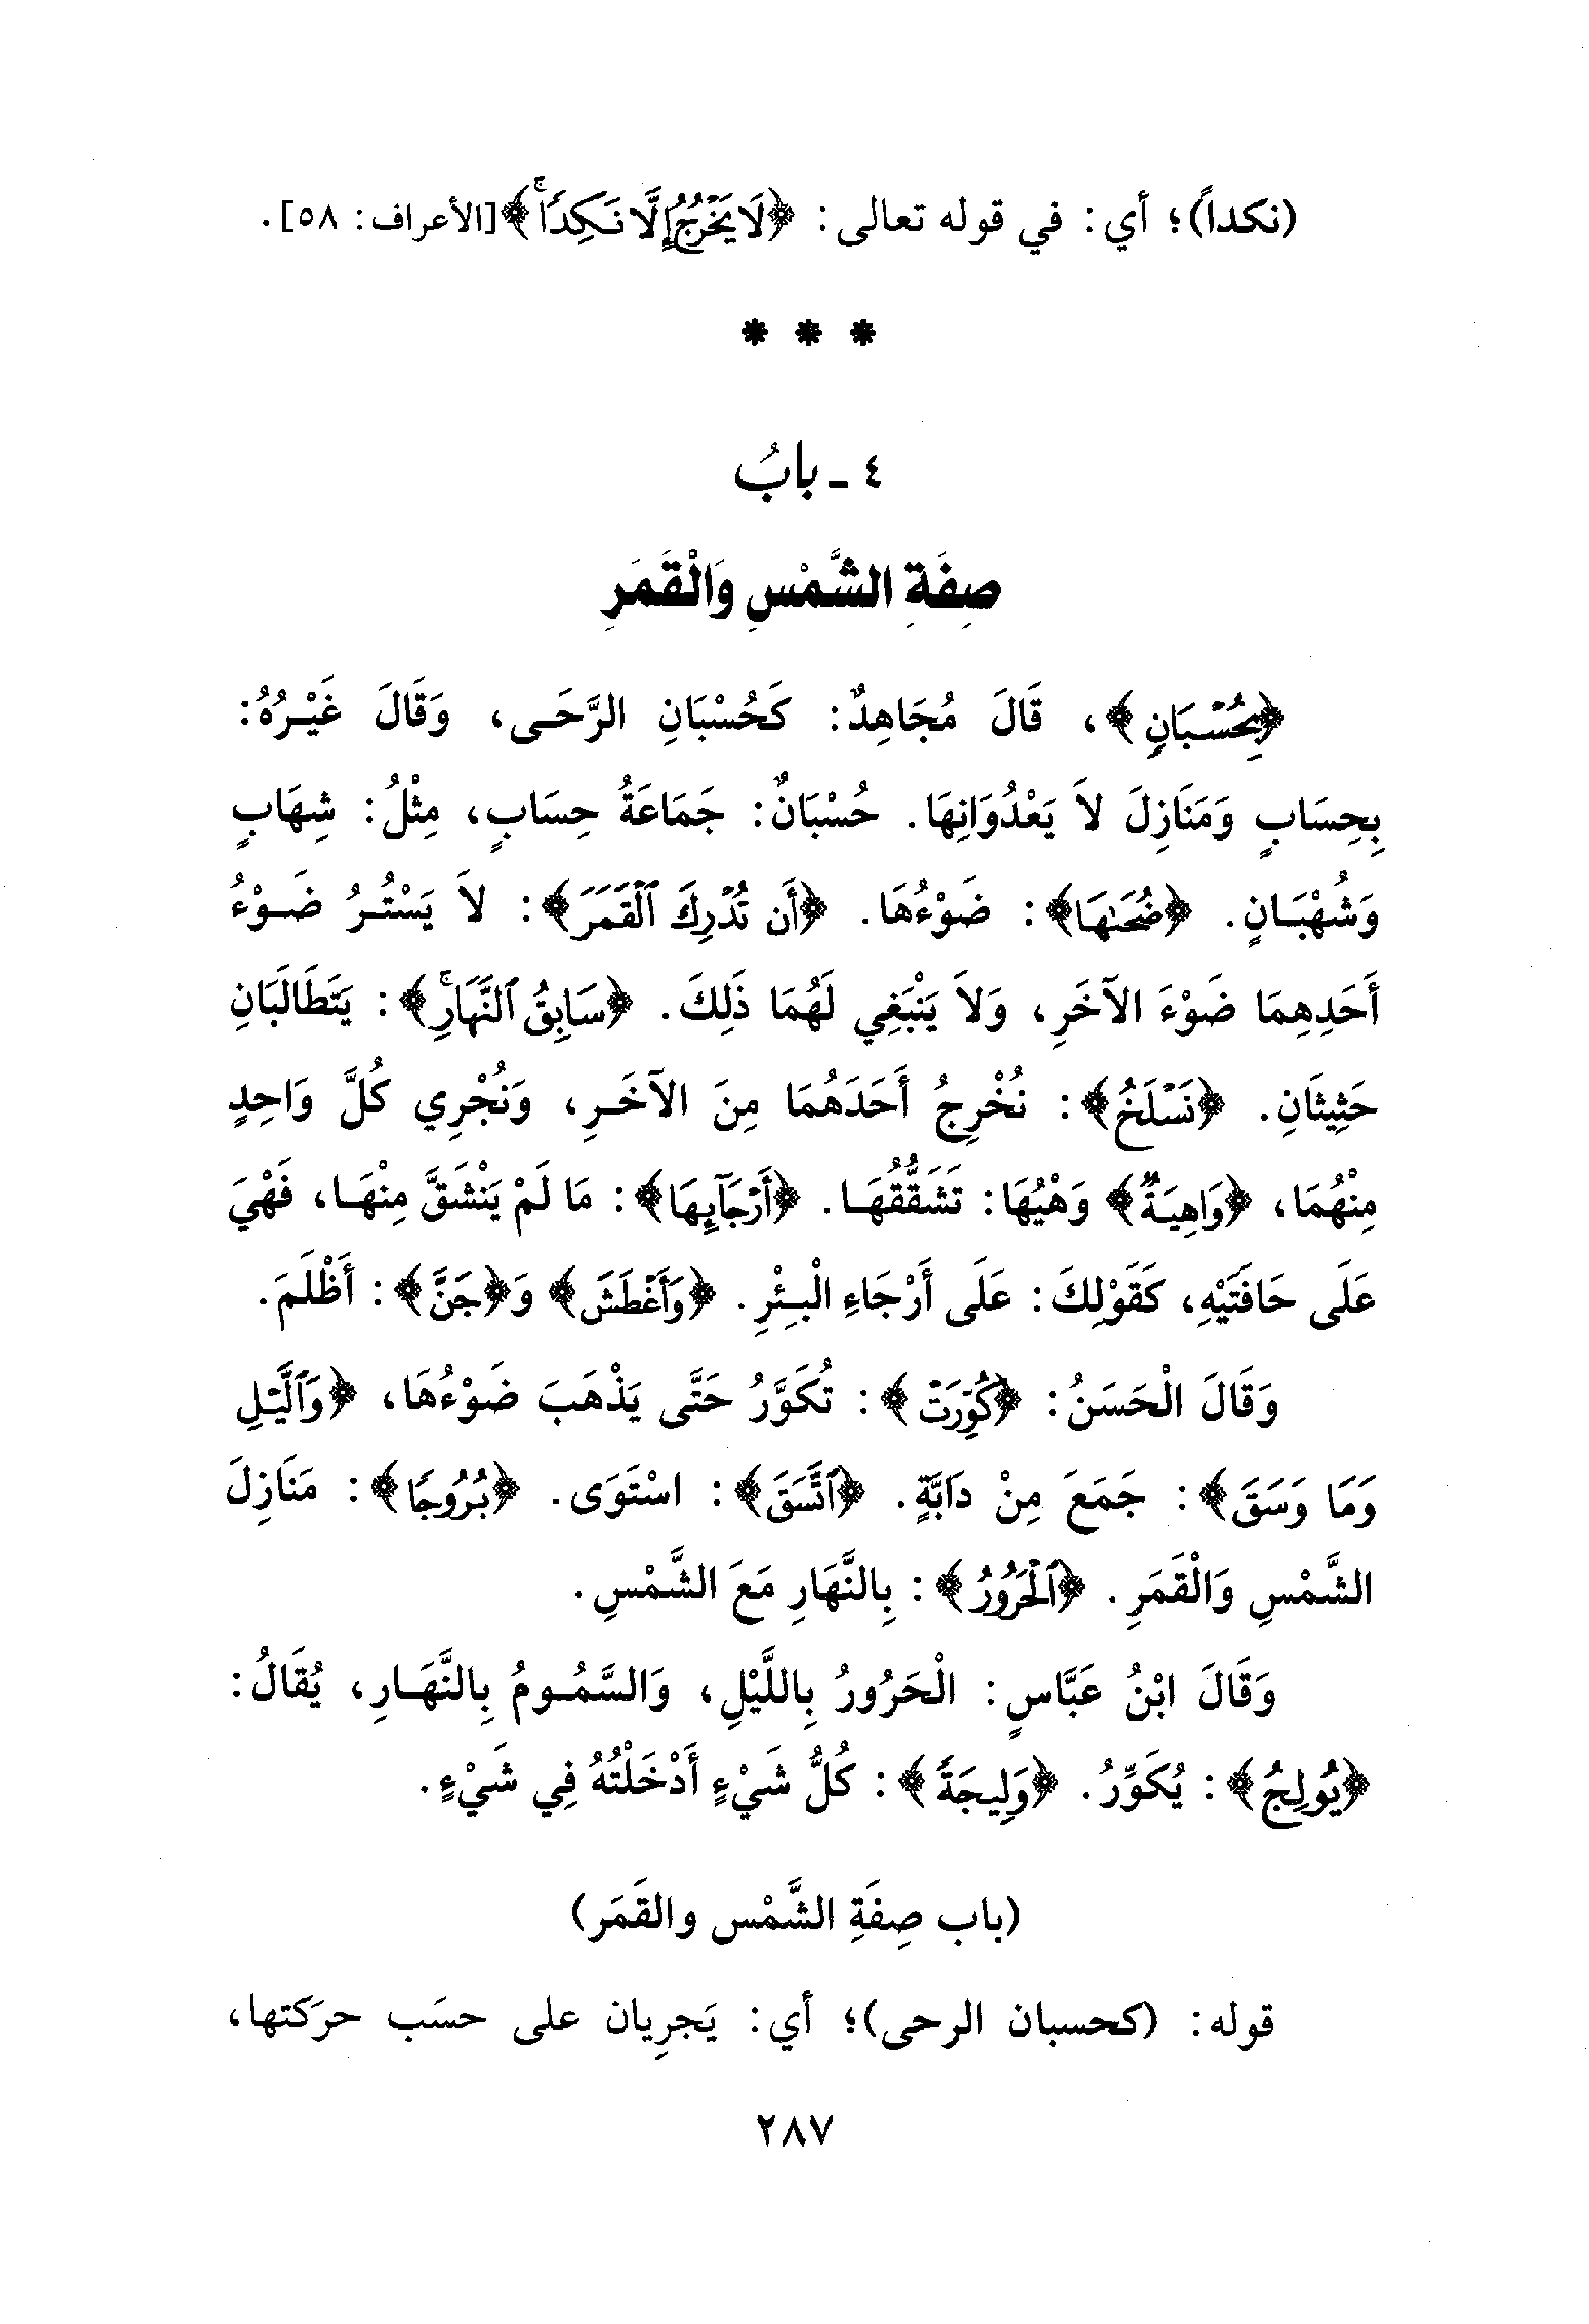 (نكداً)؛ أي: في قوله تعالى: ﴿لَا يَخْرُجُ إِلَّا نَكِدًا﴾ [الأعراف: ٥٨].
* * *
٤ ـ بابُ
صِفَةِ الشَّمْسِ وَالْقَمَرِ
﴿بِحُسْبَانٍ﴾، قَالَ مُجَاهِدٌ: كَحُسْبَانِ الرَّحَى، وَقَالَ غَيْرُهُ:
بِحِسَابٍ وَمَنَازِلَ لاَ يَعْدُوَانِهَا. حُسْبَانٌ: جَمَاعَةُ حِسَابٍ، مِثْلُ: شِهَابٍ
وَشُهْبَانٍ. ﴿ضُحَىٰهَا﴾: ضَوْءُهَا. ﴿أَن تُدْرِكَ ٱلْقَمَرَ﴾: لاَ يَسْتُرُ ضَوْءُ
أَحَدِهِمَا ضَوْءَ الآخَرِ، وَلاَ يَنْبَغِي لَهُمَا ذَلِكَ. ﴿سَابِقُ ٱلنَّهَارِ﴾: يَتَطَالَبَانِ
حَثِيثَانِ. ﴿نَسْلَخُ﴾: نُخْرِجُ أَحَدَهُمَا مِنَ الآخَرِ، وَنُجْرِي كُلَّ وَاحِدٍ
مِنْهُمَا، ﴿وَاهِيَةٌ﴾ وَهْيُهَا: تَشَقُّقُهَا. ﴿أَرْجَآئِهَا﴾: مَا لَمْ يَنْشَقَّ مِنْهَا، فَهْيَ
عَلَى حَافَتَيْهِ، كَقَوْلِكَ: عَلَى أَرْجَاءِ الْبِئْرِ. ﴿وَأَغْطَشَ﴾ وَ﴿جَنَّ﴾: أَظْلَمَ.
وَقَالَ الْحَسَنُ: ﴿كُوِّرَتْ﴾: تُكَوَّرُ حَتَّى يَذْهَبَ ضَوْءُهَا، ﴿وَٱلَّيْلِ
وَمَا وَسَقَ﴾: جَمَعَ مِنْ دَابَّةٍ. ﴿ٱتَّسَقَ﴾: اسْتَوَى. ﴿بُرُوجًا﴾: مَنَازِلَ
الشَّمْسِ وَالْقَمَرِ. ﴿ٱلْحَرُورُ﴾: بِالنَّهَارِ مَعَ الشَّمْسِ.
وَقَالَ ابْنُ عَبَّاسٍ: الْحَرُورُ بِاللَّيْلِ، وَالسَّمُومُ بِالنَّهَارِ، يُقَالُ:
﴿يُولِجُ﴾: يُكَوِّرُ. ﴿وَلِيجَةً﴾: كُلُّ شَيْءٍ أَدْخَلْتُهُ فِي شَيْءٍ.
(باب صِفَةِ الشَّمْس والقَمَر)
قوله: (كحسبان الرحى)؛ أي: يَجرِيان على حسَب حرَكتها،
٢٨٧